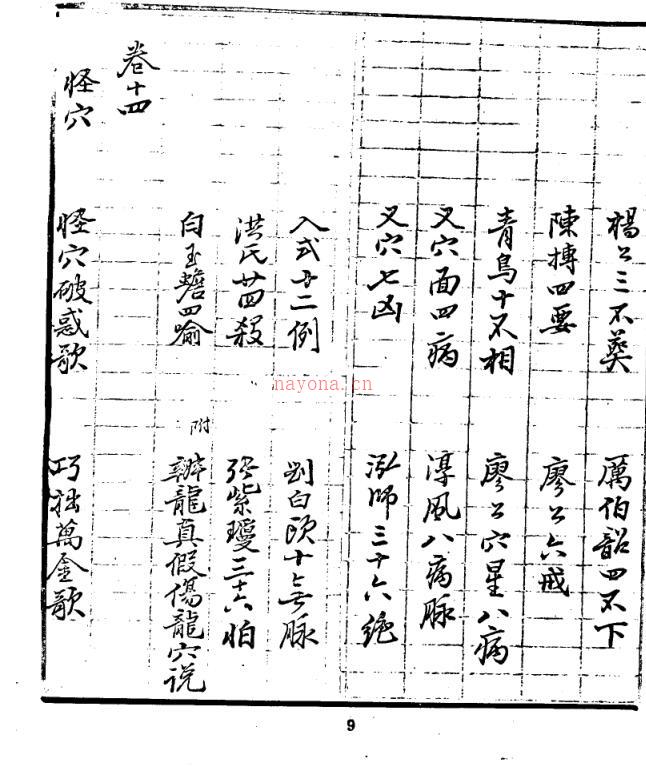 楊公三不葬 厲伯韶四不下
陳摶四要 廖公六戒
青鳥十不相 廖公穴星八病
又穴面四病 淳風八病脉
又穴七凶 泓師三十六絶
入式廿二例 劉白頭十无脉
洪氏廿四殺 張紫瓊三十六怕
白玉蟾四喻 附 辨龍真假傷龍穴説
卷十四
怪穴 怪穴破惑歌 巧拙萬金歌
nayona.cn
9